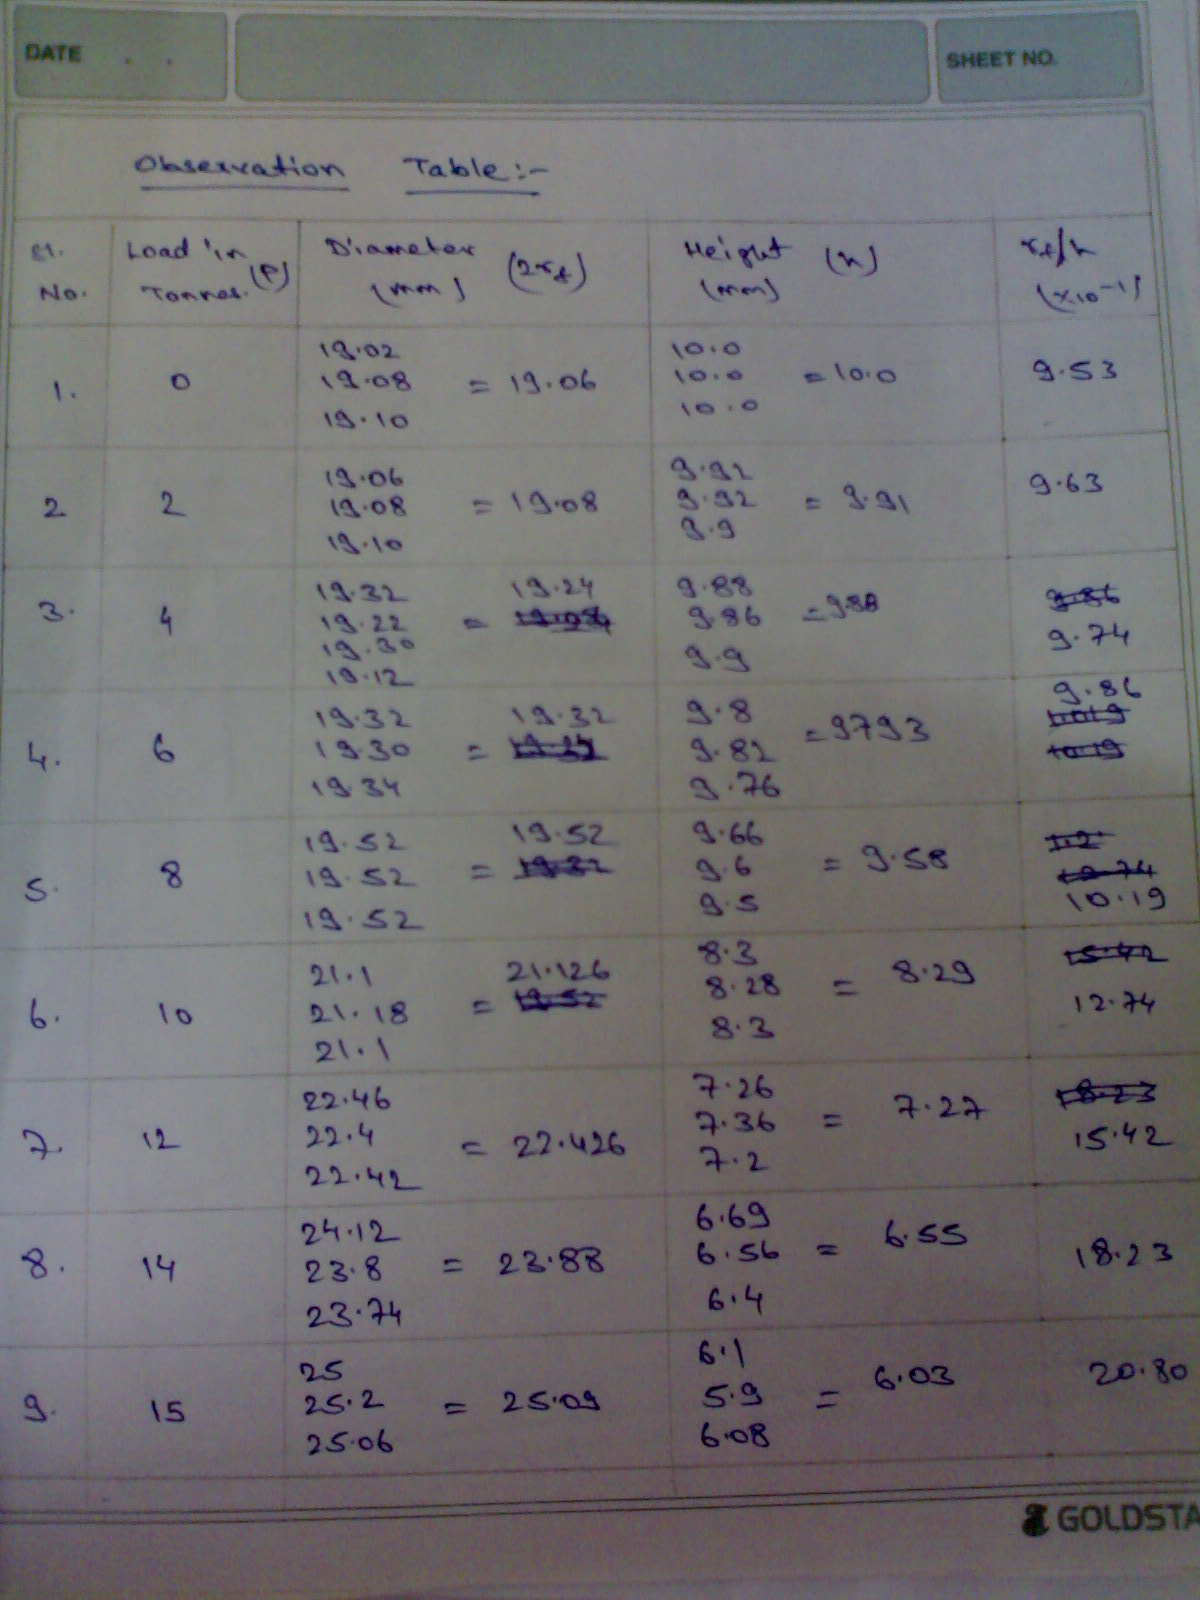 DATE . . SHEET NO.
Observation Table:-
Sl. No. Load in Tonnes. (P) Diameter (mm) (2rf) Height (mm) (h) rf/h (x10⁻¹)
1. 0 19.02 19.08 19.10 = 19.06 10.0 10.0 10.0 = 10.0 9.53
2 2 19.06 19.08 19.10 = 19.08 9.92 9.92 9.9 = 9.91 9.63
3. 4 19.32 19.22 19.30 19.12 = 19.24 9.88 9.86 9.9 = 9.88 9.74
4. 6 19.32 19.30 19.34 = 19.32 9.8 9.82 9.76 = 9.793 9.86
5. 8 19.52 19.52 19.52 = 19.52 9.66 9.6 9.5 = 9.58 10.19
6. 10 21.1 21.18 21.1 = 21.126 8.3 8.28 8.3 = 8.29 12.74
7. 12 22.46 22.4 22.42 = 22.426 7.26 7.36 7.2 = 7.27 15.42
8. 14 24.12 23.8 23.74 = 23.88 6.69 6.56 6.4 = 6.55 18.23
9. 15 25 25.2 25.06 = 25.09 6.1 5.9 6.08 = 6.03 20.80
GOLDSTA